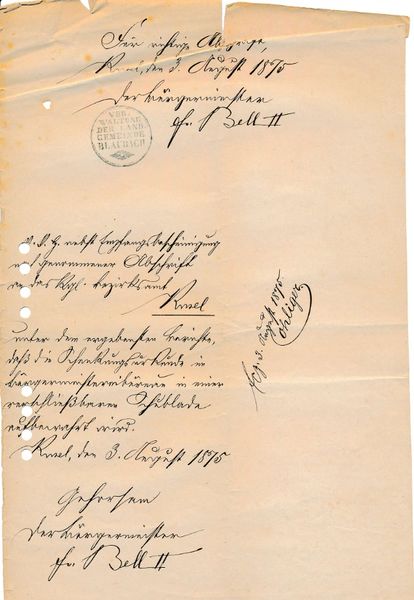 Für richtige Abschrift,
Kusel, den 3. August 1875
Der Bürgermeister
Fr. Bell II
VER-
WALTUNG
DER LAND-
GEMEINDE
BLAUBACH
nebst Empfangsbescheinigung
mit genommener Abschrift
an das Kgl. Bezirksamt
Kusel
unter dem ergebensten Berichte,
daß die Schenkungsurkunde im
Bürgermeistereibüreau in einer
verschließbaren Schublade
aufbewahrt wird.
Kusel, den 3. August 1875
Gehorsam
Der Bürgermeister
Fr. Bell II
3. August 1875.
Ohliger